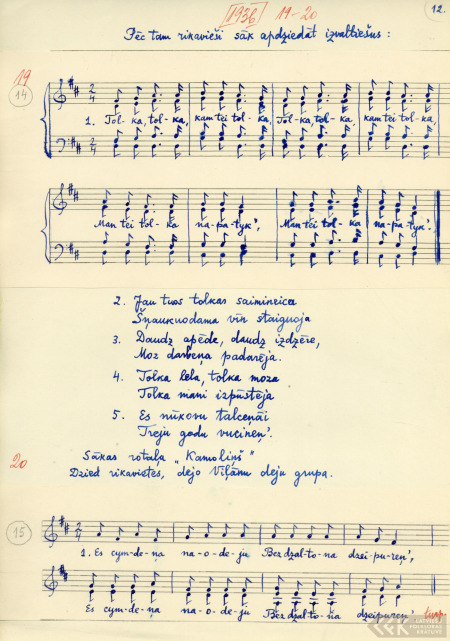 1936 19-20
12.
Pēc tam rikavieši sāk apdziedāt izvaltiešus:
19
14
1. Tol-ka, tol-ka, kam tei tol-ka, Tol-ka, tol-ka, kam tei tol-ka,
Man tei tol-ka na-pa-tyk', Man tei tol-ka na-pa-tyk'.
2. Jau tuos tolkas saimineica
Šņaukuodama vīn staiguoja
3. Daudz apēde, daudz izdzēre,
Moz darbeņa padarēja.
4. Tolka lela, tolka moza
Tolka mani izpūstēja
5. Es nūkovu talceņai
Treju godu vuciņeņ'.
20
Sākas rotaļa „Kamoliņš"
Dzied rikavietes, dejo Viļānu deju grupa.
15
1. Es cym-de-ņa na-o-de-ju Bez dzal-to-na dzei-pu-reņ',
Es cym-de-ņa na-o-de-ju Bez dzal-to-na dzeipureņ' turp.